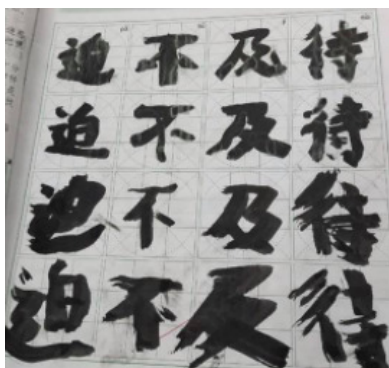 迫不及待
迫不及待
迫不及待
迫不及待